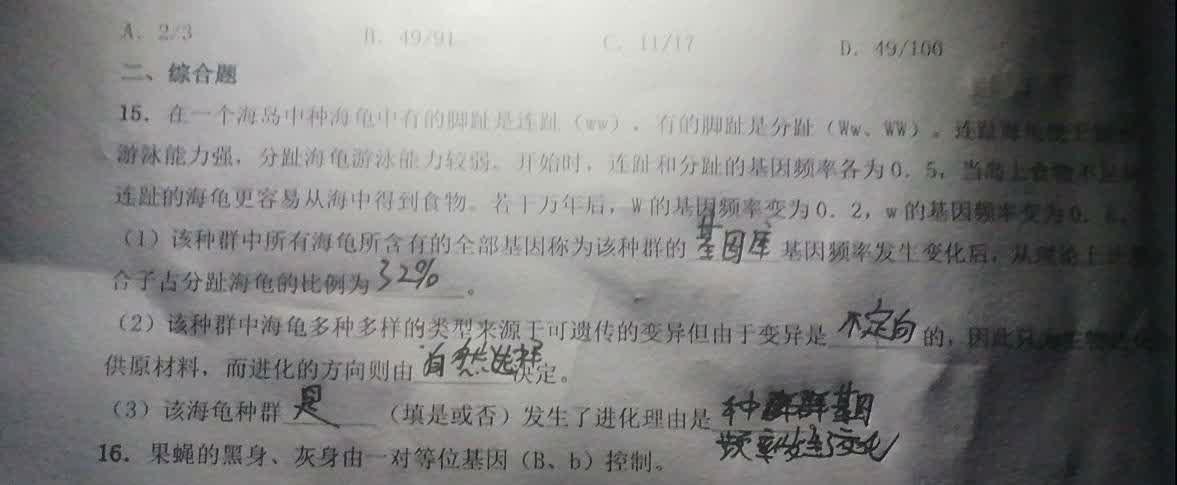 A. 2/3 B. 49/91 C. 11/17 D. 49/100
二、综合题
15. 在一个海岛中种海龟中有的脚趾是连趾（ww），有的脚趾是分趾（Ww、WW）。连趾
游泳能力强，分趾海龟游泳能力较弱。开始时，连趾和分趾的基因频率各为0.5，当岛上食物不足
连趾的海龟更容易从海中得到食物。若干万年后，W的基因频率变为0.2，w的基因频率变为0.
（1）该种群中所有海龟所含有的全部基因称为该种群的 基因库 基因频率发生变化后，从理论上
合子占分趾海龟的比例为 32% 。
（2）该种群中海龟多种多样的类型来源于可遗传的变异但由于变异是 不定向 的，因此只
供原材料，而进化的方向则由 自然选择 决定。
（3）该海龟种群 是 （填是或否）发生了进化理由是 种群基因
频率发生了变化
16. 果蝇的黑身、灰身由一对等位基因（B、b）控制。